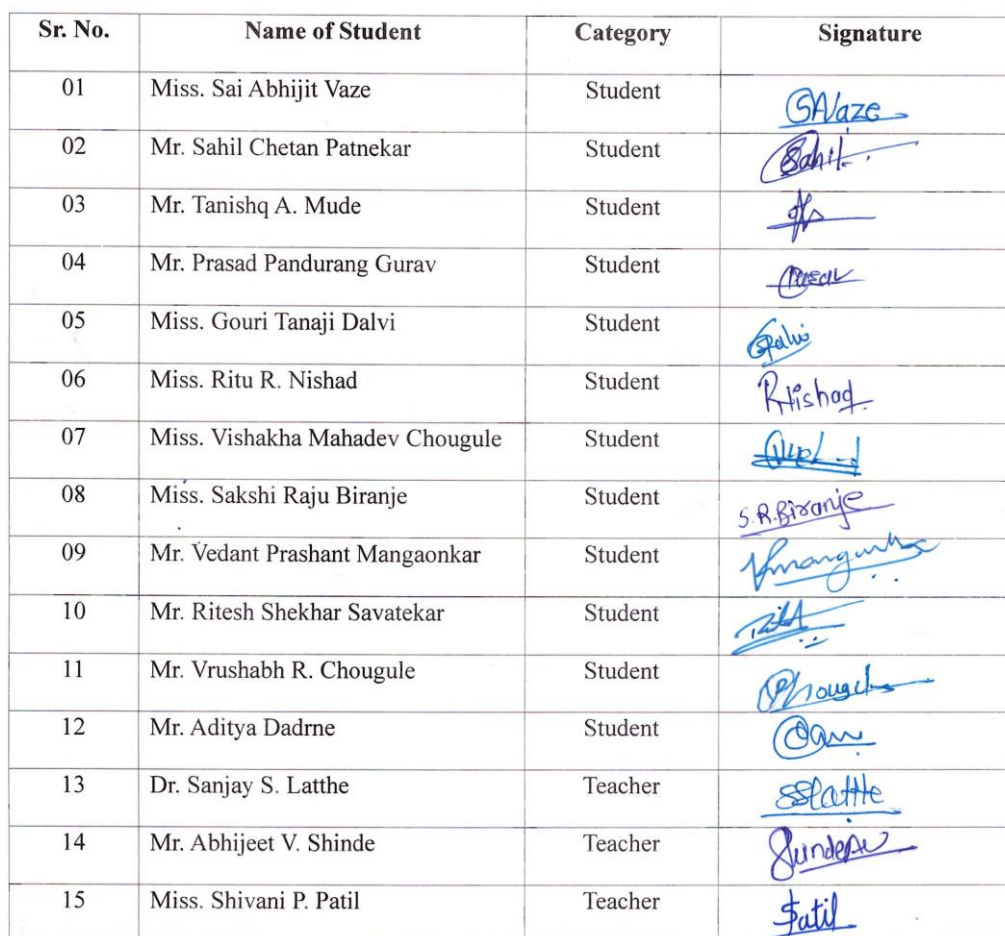 Sr. No. Name of Student Category Signature
01 Miss. Sai Abhijit Vaze Student SAVaze
02 Mr. Sahil Chetan Patnekar Student Sahil
03 Mr. Tanishq A. Mude Student
04 Mr. Prasad Pandurang Gurav Student
05 Miss. Gouri Tanaji Dalvi Student GDalvi
06 Miss. Ritu R. Nishad Student RNishad
07 Miss. Vishakha Mahadev Chougule Student
08 Miss. Sakshi Raju Biranje Student S.R.Biranje
09 Mr. Vedant Prashant Mangaonkar Student
10 Mr. Ritesh Shekhar Savatekar Student
11 Mr. Vrushabh R. Chougule Student
12 Mr. Aditya Dadrne Student
13 Dr. Sanjay S. Latthe Teacher SSLatthe
14 Mr. Abhijeet V. Shinde Teacher
15 Miss. Shivani P. Patil Teacher SPatil